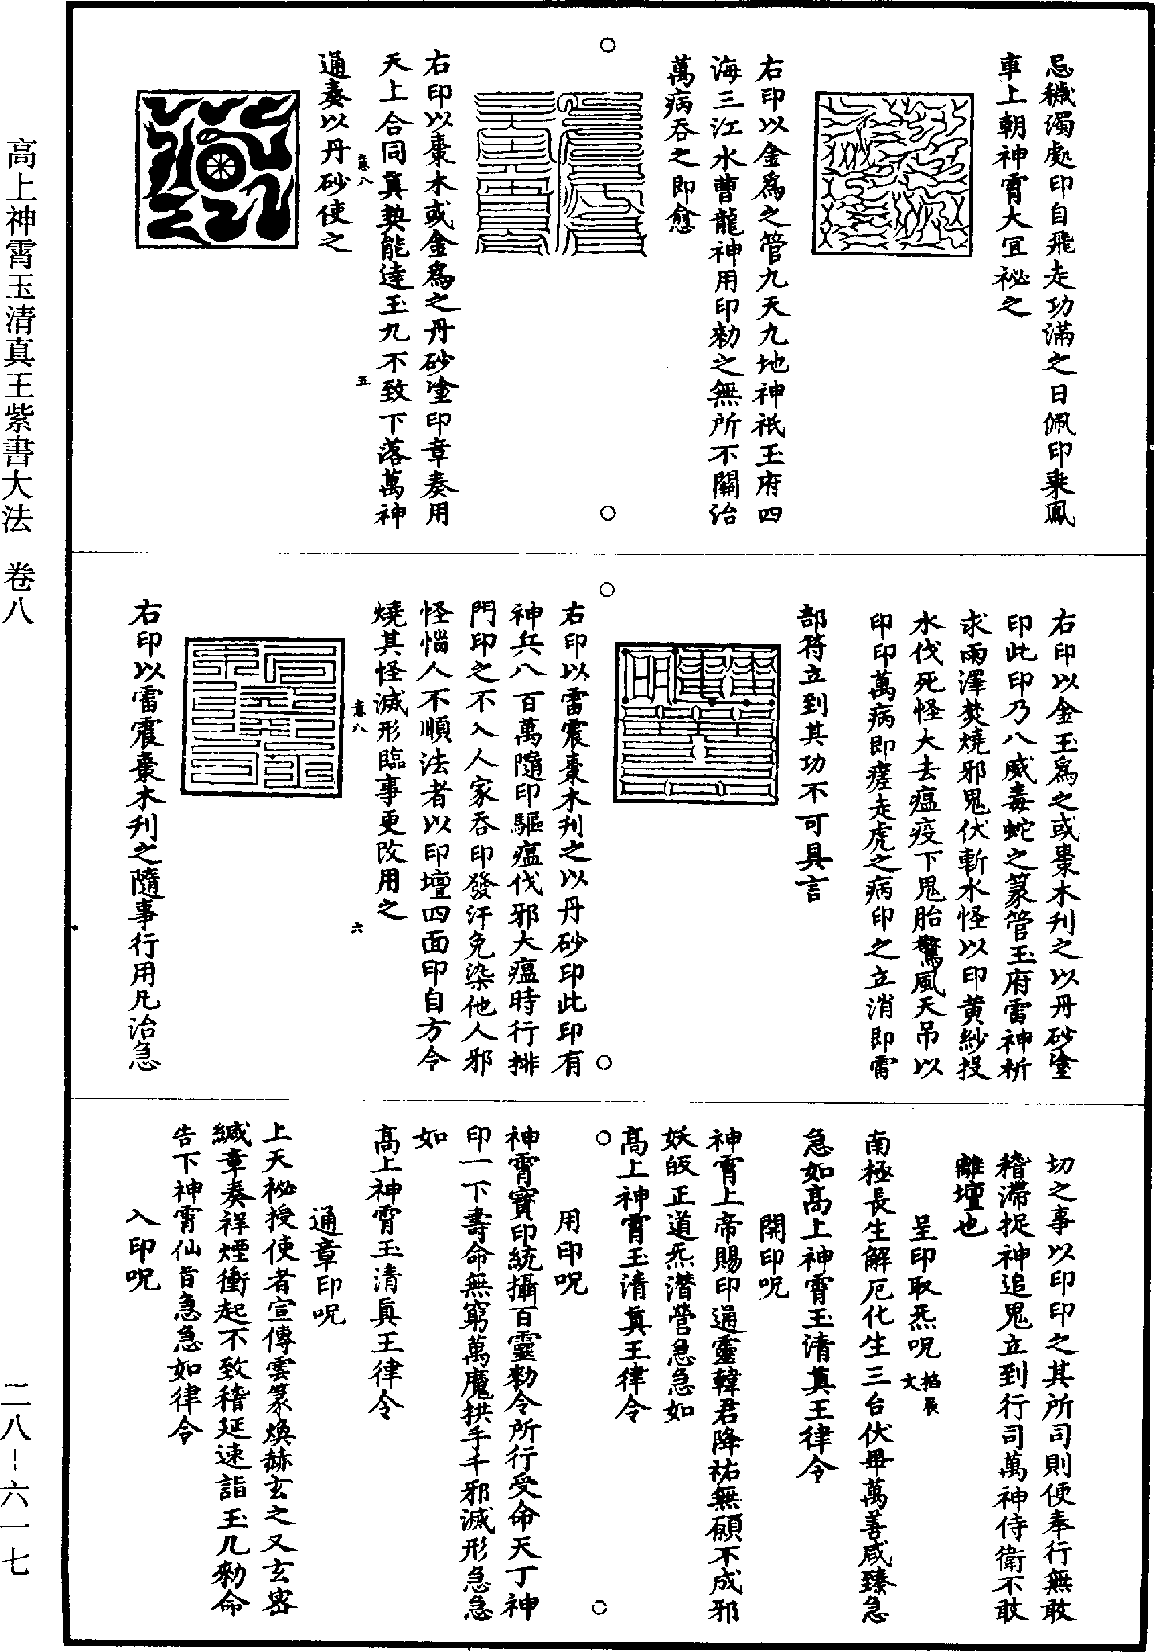 忌穢濁處印自飛走功滿之日佩印乘鳳
車上朝神霄大宜祕之
右印以金為之管九天九地神祇玉府四
海三江水曹龍神用印勑之無所不關治
萬病吞之即愈
右印以棗木或金為之丹砂塗印章奏用
天上合同真契能達玉九不致下落萬神
卷八
五
通奏以丹砂使之
右印以金玉為之或棗木刊之以丹砂塗
印此印乃八威毒蛇之篆管玉府雷神祈
求雨澤焚燒邪鬼伏斬水怪以印黃紗投
水伐死怪大去瘟疫下鬼胎驚風天吊以
印印萬病即瘥走虎之病印之立消即雷
部符立到其功不可具言
右印以雷震棗木刊之以丹砂印此印有
神兵八百萬隨印驅瘟伐邪大瘟時行排
門印之不入人家吞印發汗免染他人邪
怪惱人不順法者以印壇四面印自方令
燒其怪滅形臨事更改用之
卷八
六
右印以雷震棗木刊之隨事行用凡治急
切之事以印印之其所司則便奉行無敢
稽滯捉神追鬼立到行司萬神侍衛不敢
離壇也
呈印取炁呪
掐辰
文
南極長生解厄化生三台伏畢萬善咸臻急
急如高上神霄玉清真王律令
開印呪
神霄上帝賜印通靈韓君降祐無願不成邪
妖皈正道炁潛營急急如
高上神霄玉清真王律令
用印呪
神霄寶印統攝百靈勑令所行受命天丁神
印一下壽命無窮萬魔拱手千邪滅形急急
如
高上神霄玉清真王律令
通章印呪
上天祕授使者宣傳雲篆煥赫玄之又玄密
緘章奏祥煙衝起不致稽延速詣玉几勑命
告下神霄仙旨急急如律令
入印呪
高上神霄玉清真王紫書大法　卷八
二八－六一七